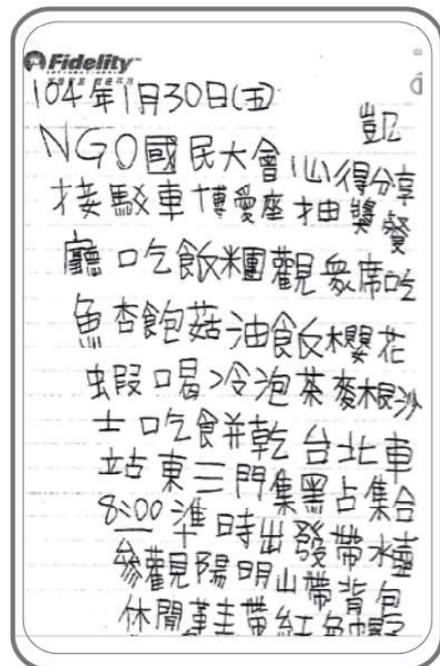 Fidelity
INTERNATIONAL
104年1月30日(五)
凱
NGO國民大會心得分享
接駁車博愛座抽獎餐
廳吃飯糰觀眾席吃
魚杏飽菇油飯櫻花
蝦喝冷泡茶麥根沙
士吃餅乾台北車
站東三門集點集合
8:00準時出發帶水壺
參觀陽明山帶背包
休閒鞋帶紅色帽子